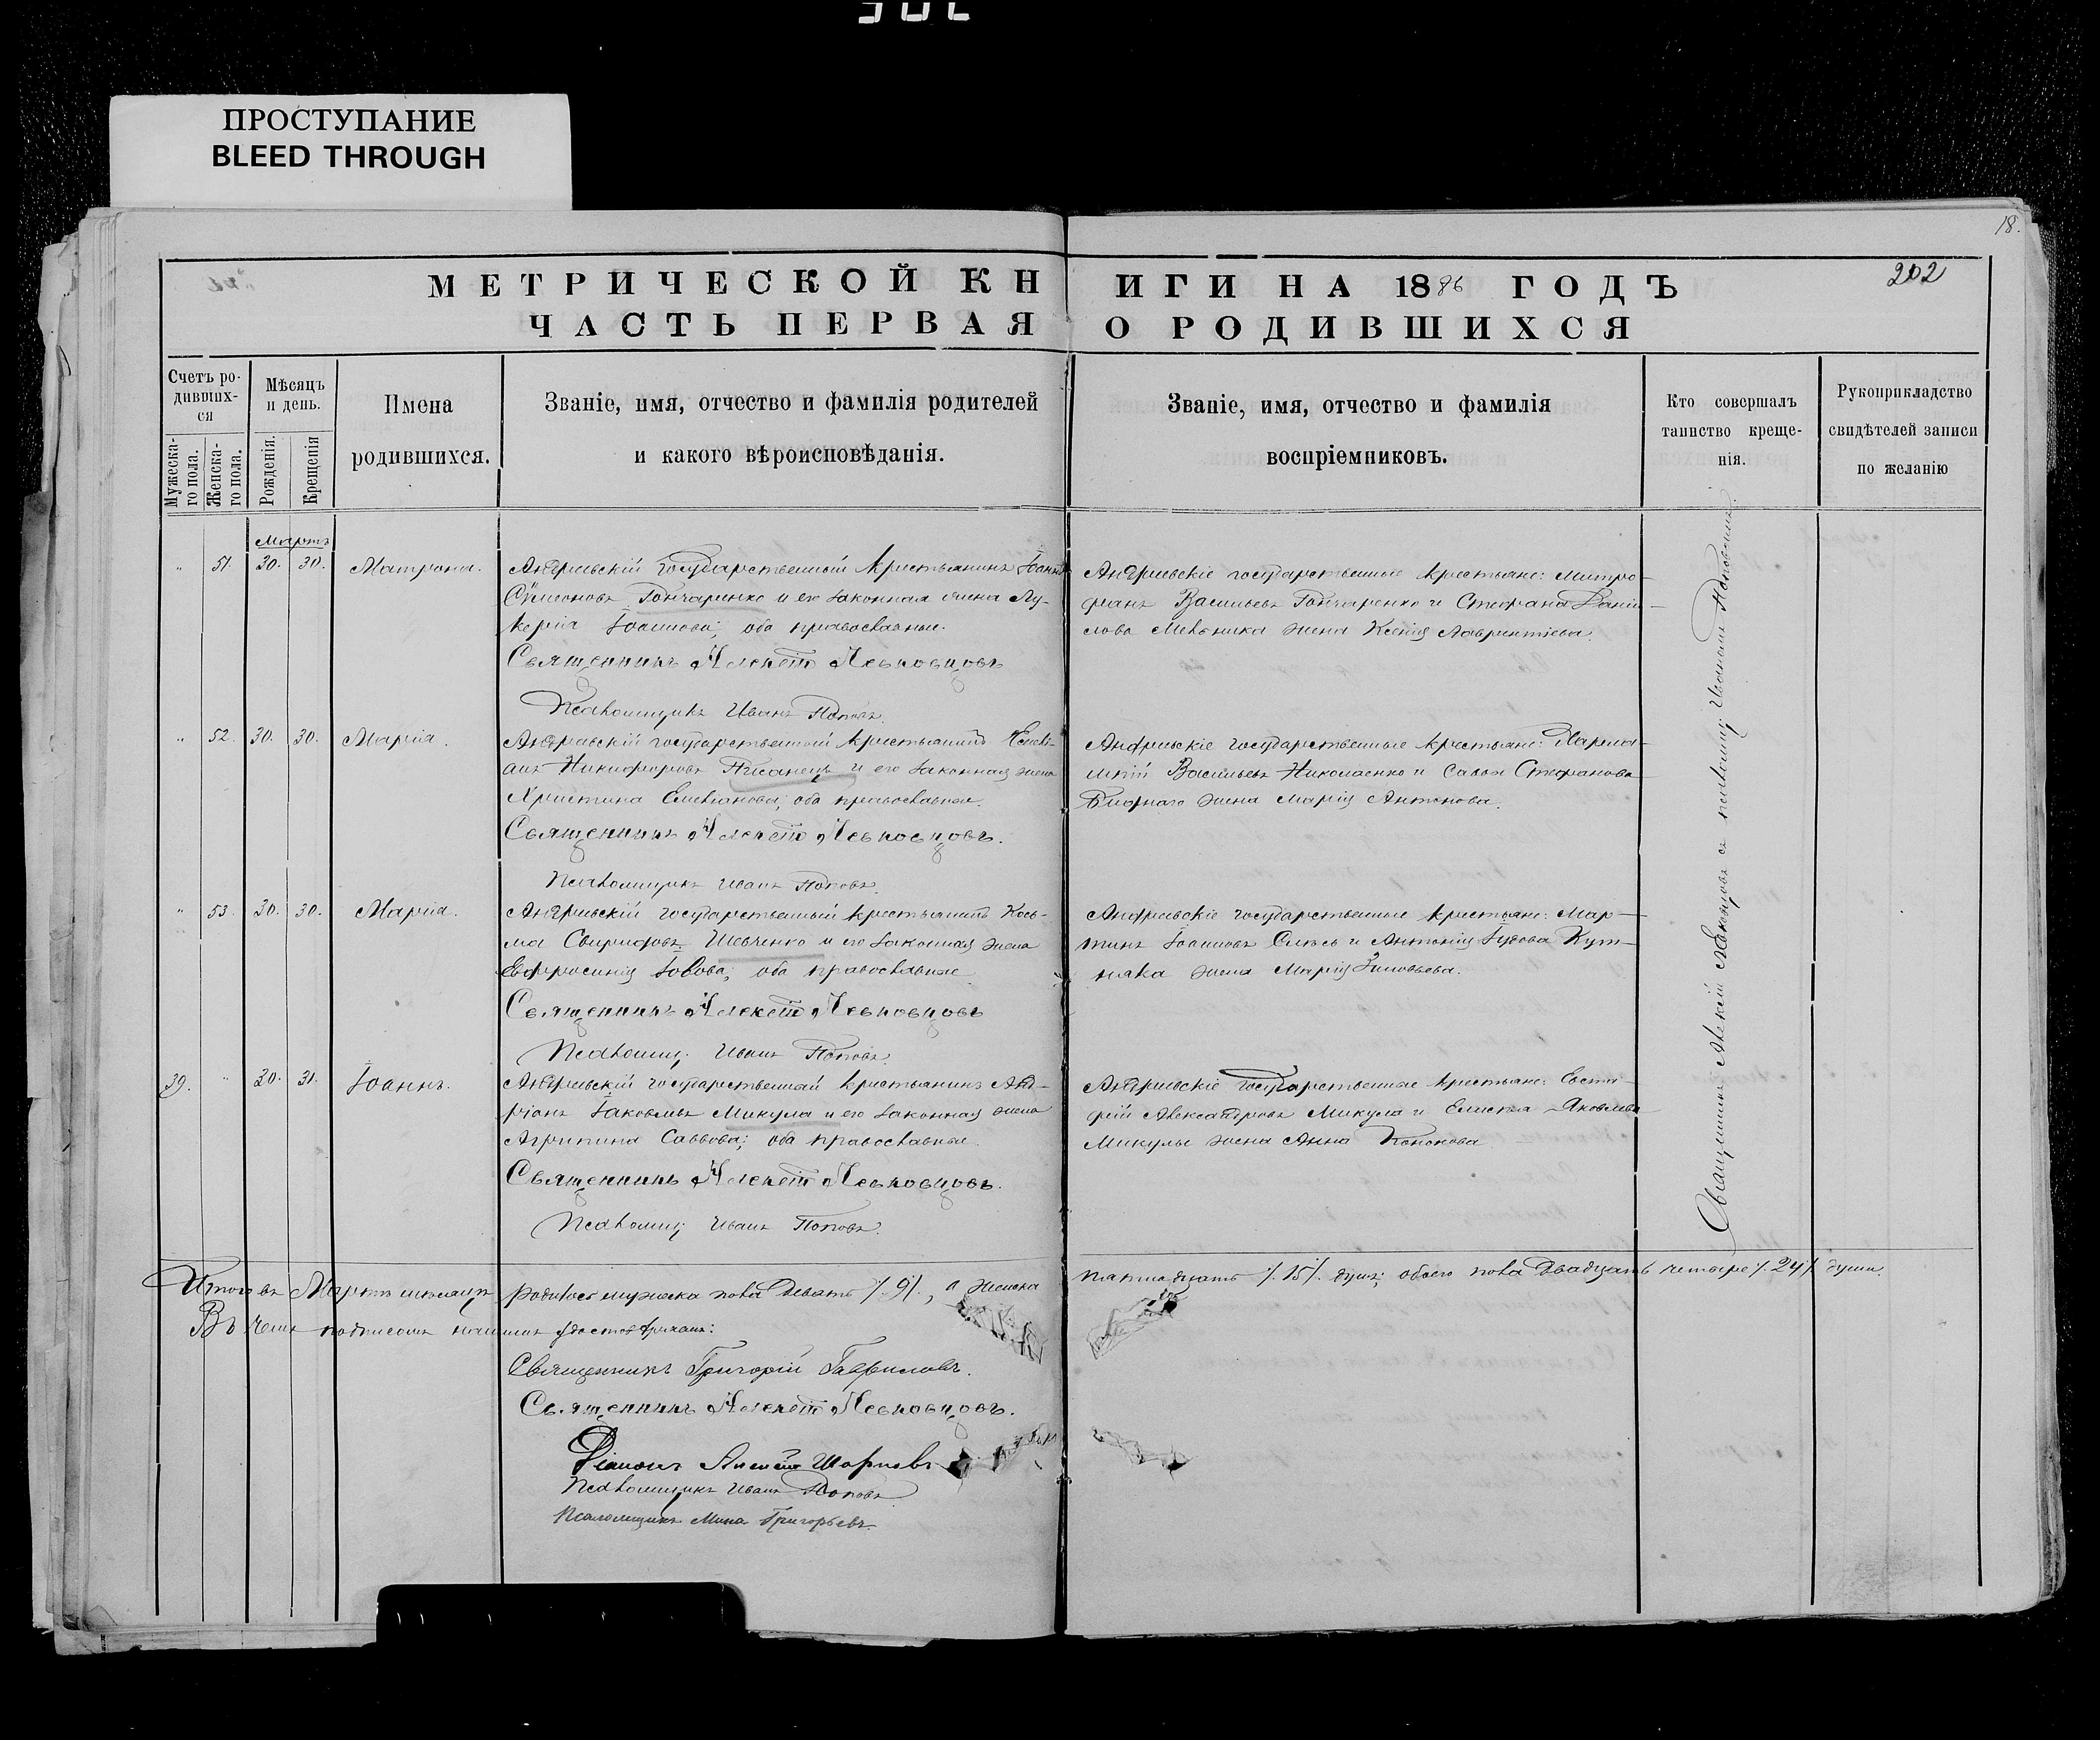 ПРОСТУПАНИЕ
BLEED THROUGH
18.
202
МЕТРИЧЕСКОЙ КНИГИ НА 1886 ГОДЪ
ЧАСТЬ ПЕРВАЯ О РОДИВШИХСЯ
Счетъ родившихся
Мужескаго пола.
Женскаго пола.
Мѣсяцъ и день.
Рожденія.
Крещенія
Имена родившихся.
Званіе, имя, отчество и фамилія родителей
и какого вѣроисповѣданія.
Званіе, имя, отчество и фамилія
воспріемниковъ.
Кто совершалъ
таинство креще-
нія.
Рукоприкладство
свидѣтелей записи
по желанію
Мартъ
" 51. 30. 30. Матрона.
Андреевскій государственный крестьянинъ Іоаннъ
Сѵмеоновъ Гончаренко и его законная жена Лу-
керія Іоаннова; оба православные.
Священникъ Алексій Левковцовъ
Псаломщикъ Иванъ Поповъ.
Андреевскіе государственные крестьяне: Митро-
фанъ Васильевъ Гончаренко и Стефана Дани-
лова Мельника жена Ксенія Лаврентіева.
" 52. 30. 30. Марія.
Андреевскій государственный крестьянинъ Емелі-
анъ Никифоровъ Писанецъ и его законная жена
Христина Емеліанова; оба православные.
Священникъ Алексій Левковцовъ.
Псаломщикъ Иванъ Поповъ.
Андреевскіе государственные крестьяне:
Васильевъ Николаенко и Саввы Стефанова
жена Марія Антонова.
" 53. 30. 30. Марія.
Андреевскій государственный крестьянинъ Кось-
ма Свиридовъ Шевченко и его законная жена
Евфросинія Іовова; оба православные
Священникъ Алексій Левковцовъ
Псаломщ. Иванъ Поповъ
Андреевскіе государственные крестьяне: Мар-
тинъ Іоанновъ и Антонія
жена Марія Зиновьева.
39. " 30. 31. Іоаннъ.
Андреевскій государственный крестьянинъ Анд-
ріанъ Іаковлевъ Микула и его законная жена
Агрипина Саввова; оба православные.
Священникъ Алексій Левковцовъ.
Псаломщ. Иванъ Поповъ.
Андреевскіе государственные крестьяне: Евста-
фій Александровъ Микула и Елисея Яковлева
Микулы жена Анна Кононова
Священникъ Алексій Левковцовъ съ псаломщ. Иваномъ Поповымъ.
Итого въ Мартѣ мѣсяцѣ родилось мужеска пола девять /.9/., а женска пятнадцать /.15/. душъ; обоего пола двадцать четыре /.24/. души.
Въ чемъ подписомъ нашимъ удостовѣряемъ:
Священникъ Григорій Гавриловъ.
Священникъ Алексій Левковцовъ.
Діаконъ Алексій
Псаломщикъ Иванъ Поповъ
Псаломщикъ Мина Григорьевъ.